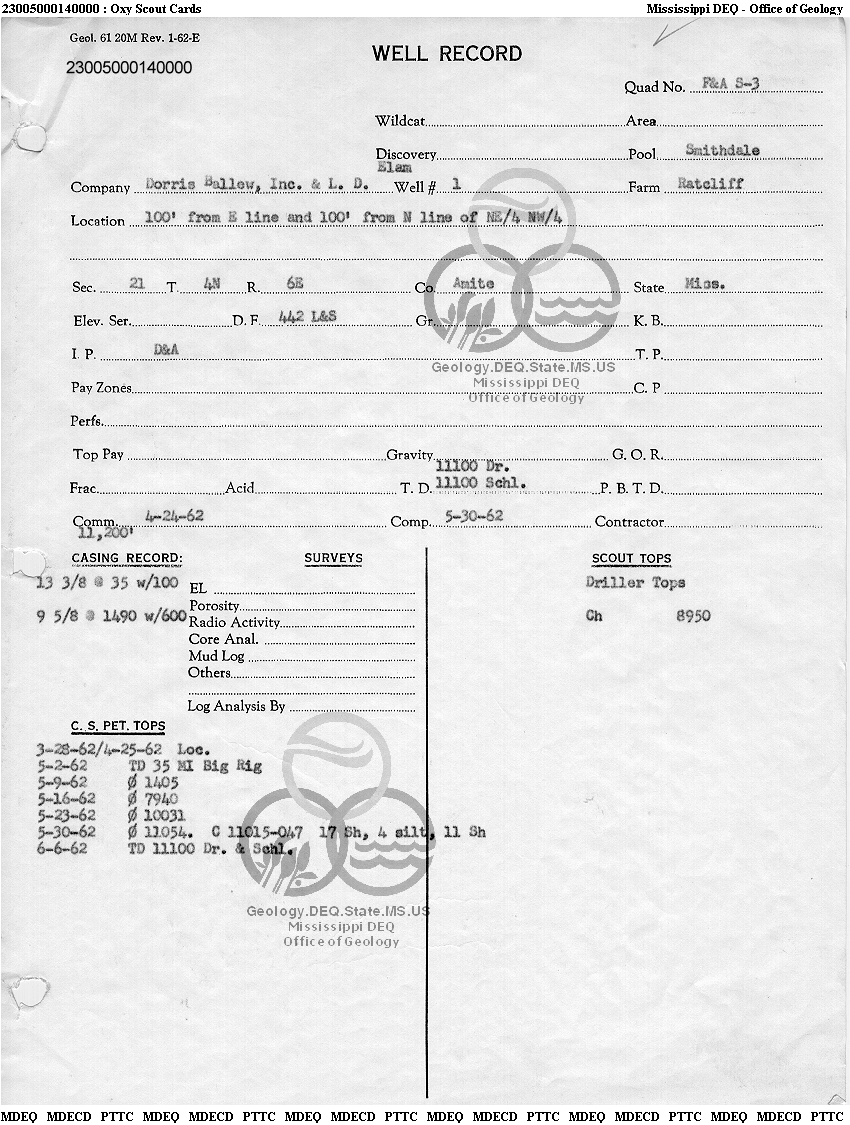 23005000140000 : Oxy Scout Cards Mississippi DEQ - Office of Geology
Geol. 61 20M Rev. 1-62-E
23005000140000
WELL RECORD
Quad No. F&A S-3
Wildcat Area
Discovery Pool Smithdale
Elam
Company Dorris Ballew, Inc. & L. D. Well # 1 Farm Ratcliff
Location 100' from E line and 100' from N line of NE/4 NW/4
Sec. 21 T. 4N R. 6E Co. Amite State Miss.
Elev. Ser. D. F. 442 L&S Gr. K. B.
I. P. D&A T. P.
Geology.DEQ.State.MS.US
Mississippi DEQ
Office of Geology
Pay Zones C. P
Perfs.
Top Pay Gravity G. O. R.
11100 Dr.
Frac. Acid T. D. 11100 Schl. P. B. T. D.
Comm. 4-24-62 Comp. 5-30-62 Contractor
11,200'
CASING RECORD: SURVEYS SCOUT TOPS
13 3/8 @ 35 w/100 EL Driller Tops
Porosity
9 5/8 @ 1490 w/600 Radio Activity Ch 8950
Core Anal.
Mud Log
Others
Log Analysis By
C. S. PET. TOPS
3-28-62/4-25-62 Loc.
5-2-62 TD 35 MI Big Rig
5-9-62 Ø 1405
5-16-62 Ø 7940
5-23-62 Ø 10031
5-30-62 Ø 11054. C 11015-047 17 Sh, 4 silt, 11 Sh
6-6-62 TD 11100 Dr. & Schl.
Geology.DEQ.State.MS.US
Mississippi DEQ
Office of Geology
MDEQ MDECD PTTC MDEQ MDECD PTTC MDEQ MDECD PTTC MDEQ MDECD PTTC MDEQ MDECD PTTC MDEQ MDECD PTTC